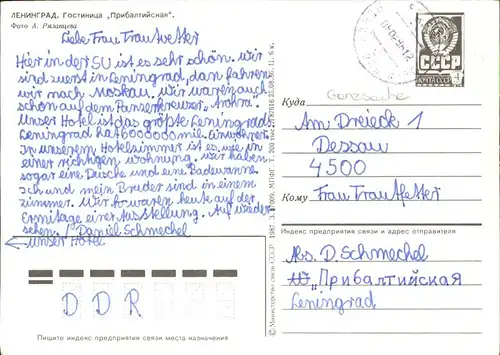 ЛЕНИНГРАД. Гостиница „Прибалтийская".
Фото А. Рязанцева
Liebe Frau Trautvetter
Hier in der SU ist es sehr schön. Wir
sind zuerst in Leningrad, dan fahren
wir nach Moskau. Wir waren auch
schon auf dem Panzerkreuzer „
Unser Hotel ist das größte Leningrad.
Leningrad hat 6000000 mil. Einwohner.
In unserem Hotelzimmer ist es wie in
einer richtigen wohnung. wir haben
sogar eine Dusche und eine Badewanne.
Ich und mein Bruder sind in einem
zimmer. Wir waren heute auf der
Ermitage einer Ausstellung. Auf wieder
sehen. / Daniel Schmechel
← unser Hotel
D D R
Пишите индекс предприятия связи места назначения
© Министерство связи СССР. 1987.
СССР
ПОЧТА
Ganzsache
Куда
Am Dreieck 1
Dessau
4500
Кому
Frau Trautfetter
Индекс предприятия связи и адрес отправителя
Abs. D. Schmechel
„Прибалтийская
Leningrad